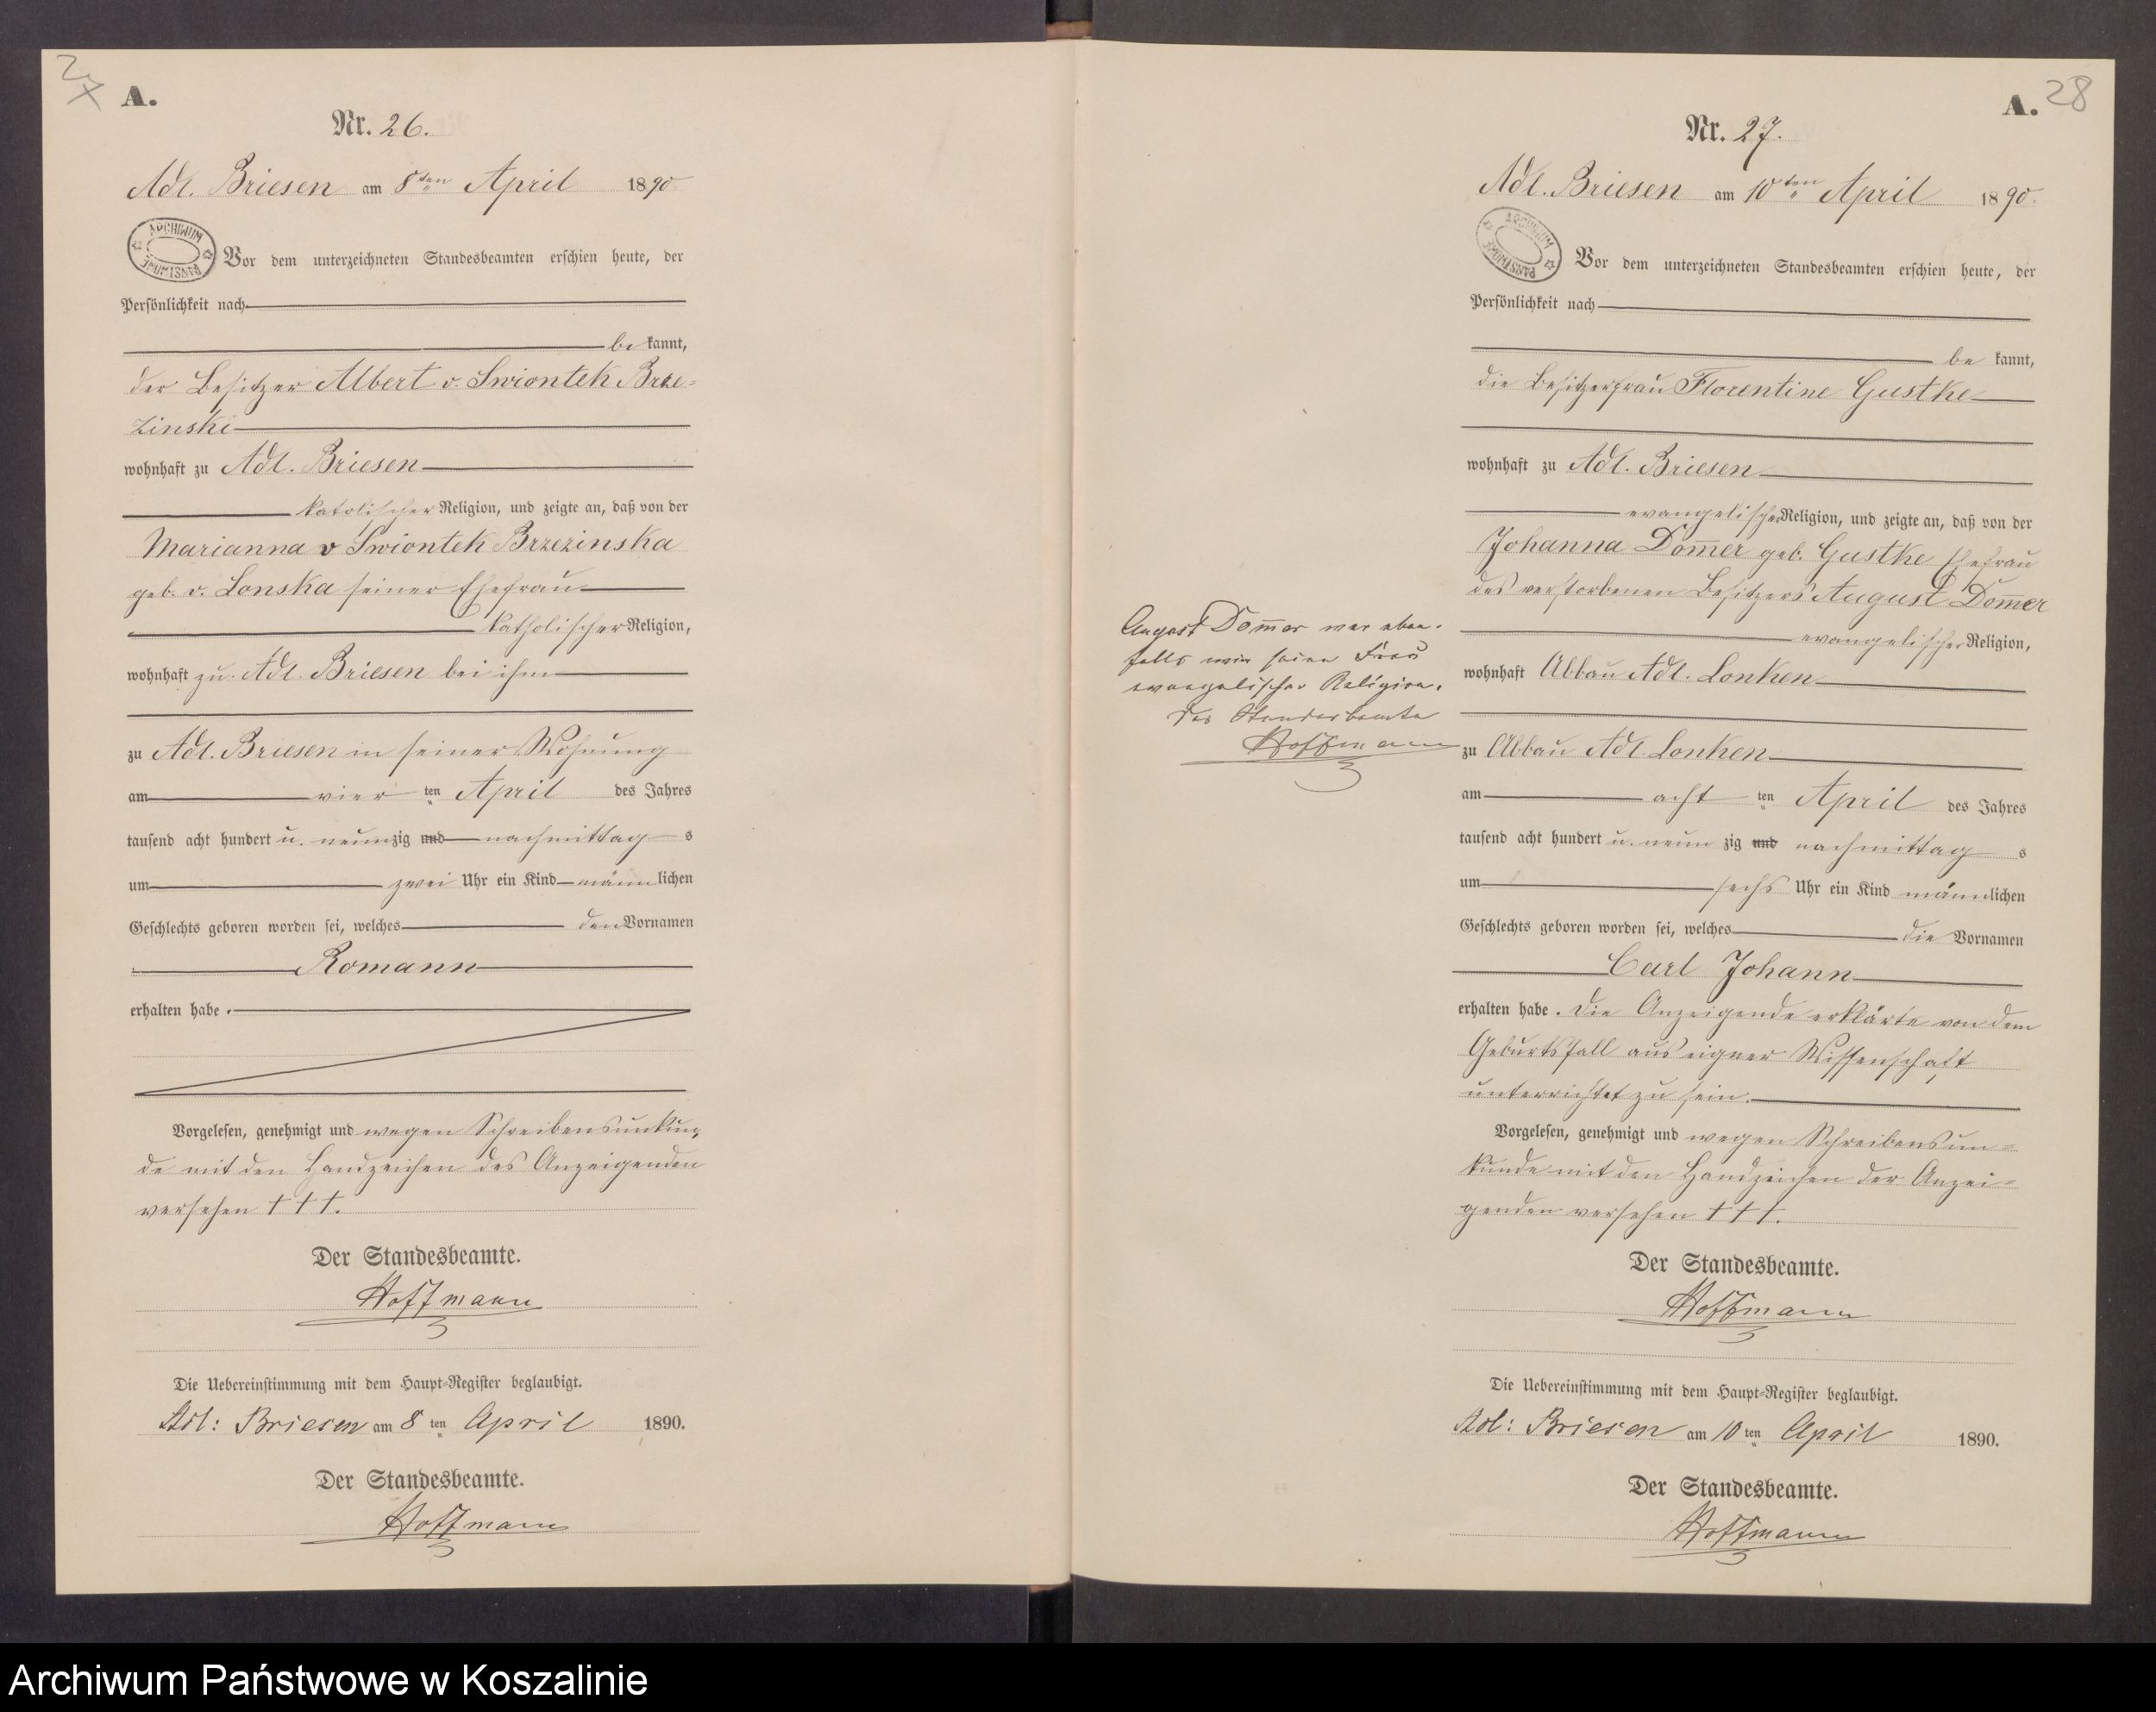 A.
Nr. 26.
Adl. Briesen am 8ten April 1890
ARCHIWUM PAŃSTWOWE
Vor dem unterzeichneten Standesbeamten erschien heute, der
Persönlichkeit nach
be kannt,
der Besitzer Albert v. Swiontek Brze-
zinski
wohnhaft zu Adl. Briesen
katolischer Religion, und zeigte an, daß von der
Marianna v Swiontek Brzezinska
geb. v. Lonska seiner Ehefrau
katholischer Religion,
wohnhaft zu Adl. Briesen bei ihm
zu Adl. Briesen in seiner Wohnung
am vier ten April des Jahres
tausend acht hundert u. neunzig und nachmittag s
um zwei Uhr ein Kind männlichen
Geschlechts geboren worden sei, welches den Vornamen
Romann
erhalten habe.
Vorgelesen, genehmigt und wegen Schreibensunkun-
de mit den Handzeichen des Anzeigenden
versehen † † †.
Der Standesbeamte.
Hoffmann
Die Uebereinstimmung mit dem Haupt-Register beglaubigt.
Adl: Briesen am 8 ten April 1890.
Der Standesbeamte.
Hoffmann
A. 28
Nr. 27.
Adl. Briesen am 10ten April 1890.
ARCHIWUM PAŃSTWOWE
Vor dem unterzeichneten Standesbeamten erschien heute, der
Persönlichkeit nach
be kannt,
die Besitzerfrau Florentine Gustke
wohnhaft zu Adl. Briesen
evangelischer Religion, und zeigte an, daß von der
Johanna Dom̅er geb. Gustke Ehefrau
des verstorbenen Besitzers August Dom̅er
evangelischer Religion,
wohnhaft Abbau Adl. Lonken
zu Abbau Adl. Lonken
am acht ten April des Jahres
tausend acht hundert u. neun zig und nachmittag s
um sechs Uhr ein Kind männlichen
Geschlechts geboren worden sei, welches die Vornamen
Carl Johann
erhalten habe. Die Anzeigende erklärte von dem
Geburtsfall aus eigner Wissenschaft
unterrichtet zu sein.
Vorgelesen, genehmigt und wegen Schreibensun-
kunde mit den Handzeichen der Anzei-
genden versehen † † †.
Der Standesbeamte.
Hoffmann
Die Uebereinstimmung mit dem Haupt-Register beglaubigt.
Adl: Briesen am 10 ten April 1890.
Der Standesbeamte.
Hoffmann
August Dom̅er war eben-
falls wie seine Frau
evangelischer Religion.
Der Standesbeamte
Hoffmann
Archiwum Państwowe w Koszalinie